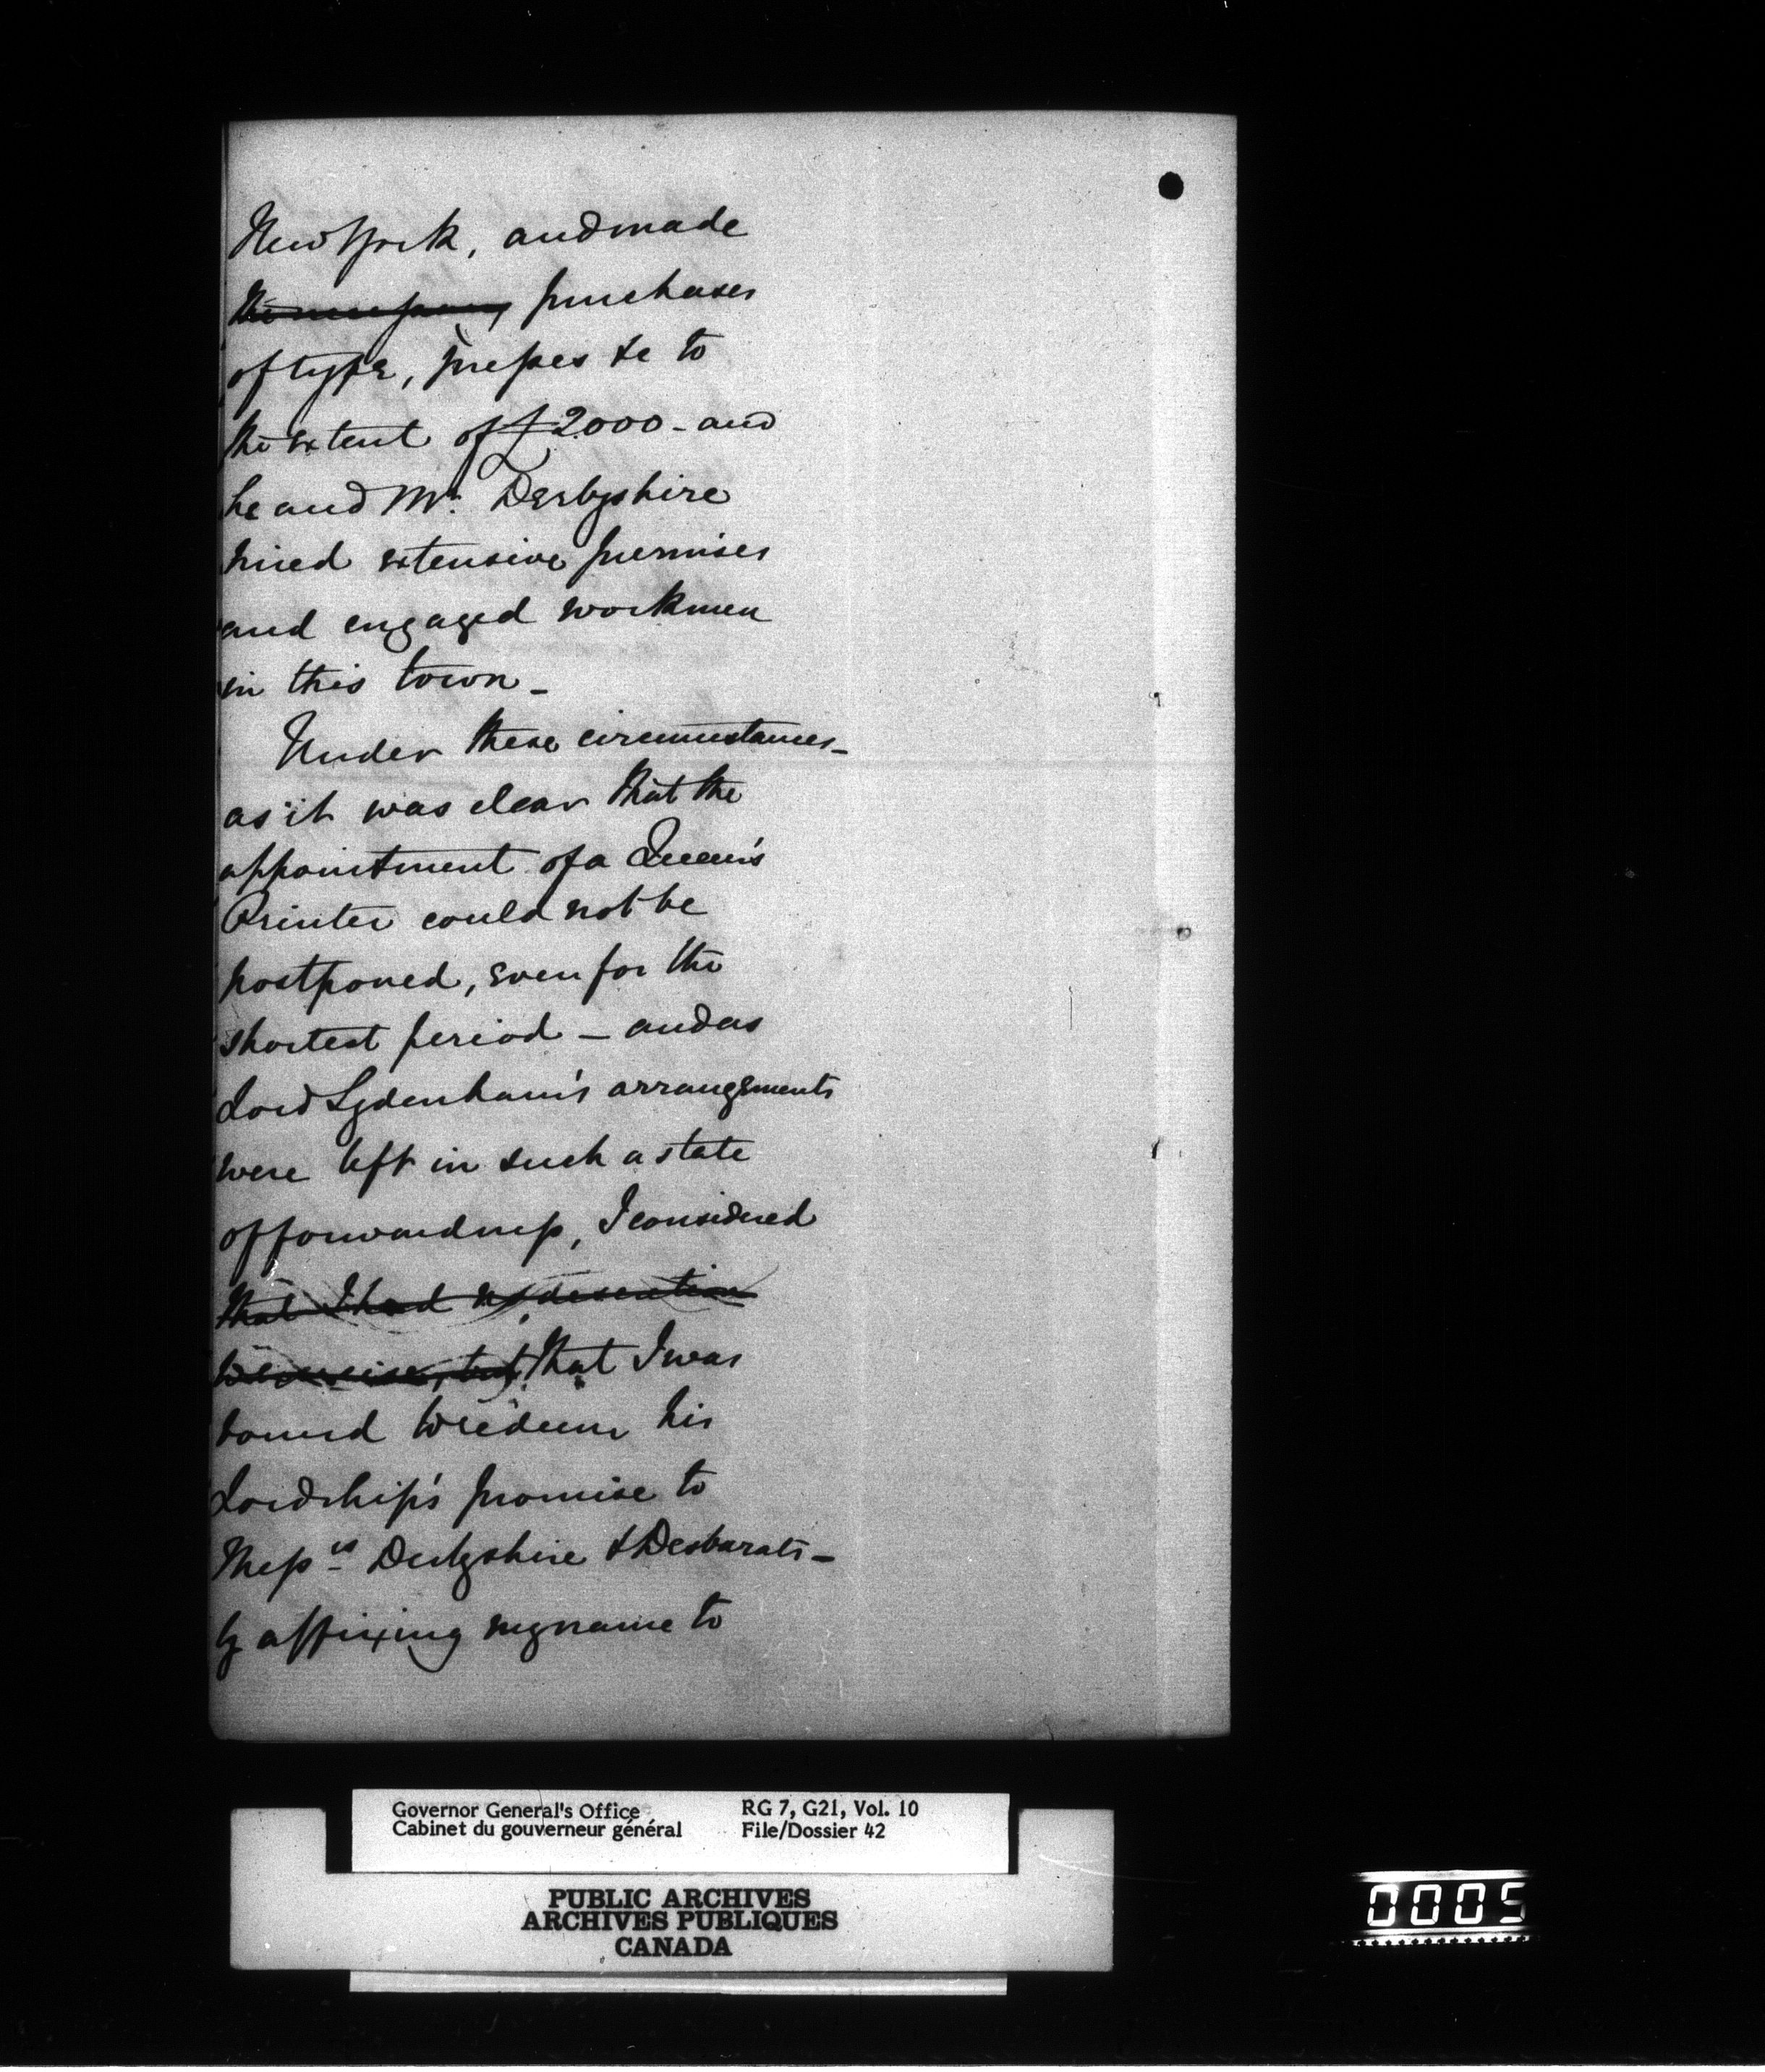 New York, and made
the necessary purchases
of type, presses &c to
the extent of £2000 - and
he and Mr. Derbyshire
hired extensive premises
and engaged workmen
in this town -
Under these circumstances -
as it was clear that the
appointment of a Queen's
Printer could not be
postponed, even for the
shortest period - and as
Lord Sydenham's arrangements
were left in such a state
of forwardness, I considered
that I had no discretion
to exercise, but that I was
bound to redeem his
Lordship's promise to
Messrs Derbyshire & Desbarats -
by affixing my name to
Governor General's Office
Cabinet du gouverneur général
RG 7, G21, Vol. 10
File/Dossier 42
PUBLIC ARCHIVES
ARCHIVES PUBLIQUES
CANADA
0005